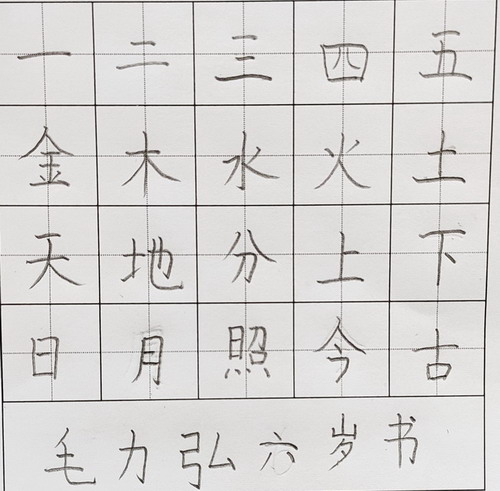 一二三四五
金木水火土
天地分上下
日月照今古
毛力弘六岁书